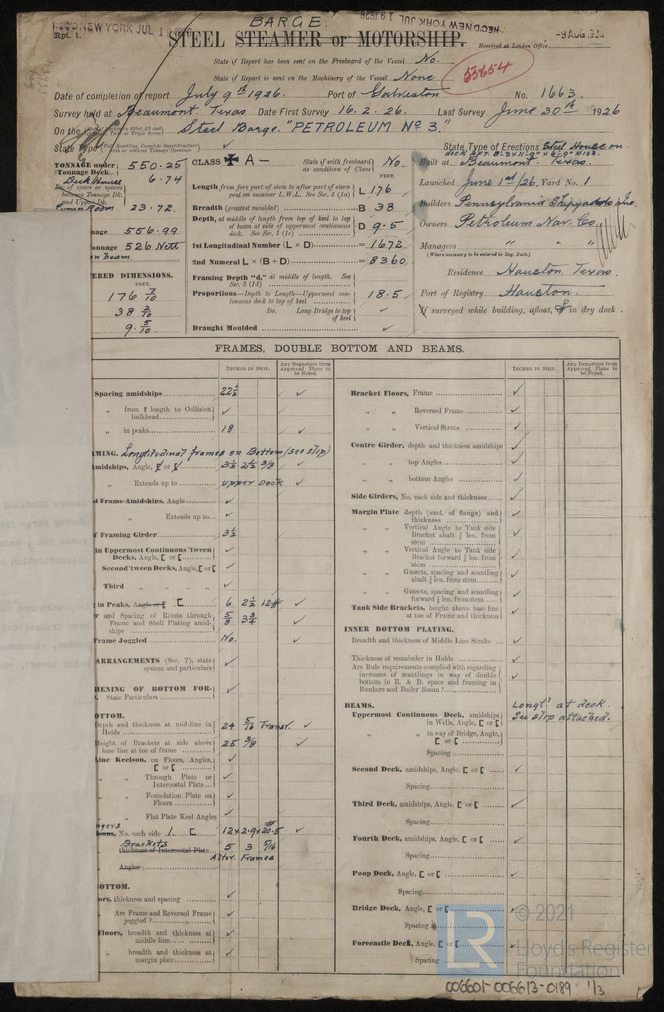 REC'D NEW YORK JUL 1 1926
BARGE.
REC'D NEW YORK JUL 19 1926
-9 AUG 1926
Rpt. 1.
STEEL STEAMER or MOTORSHIP.
Received at London Office
State if Report has been sent on the Freeboard of the Vessel No.
State if Report is sent on the Machinery of the Vessel None
53654
Date of completion of report July 9th 1926. Port of Galveston No. 1663.
Survey held at Beaumont, Texas Date First Survey 16. 2. 26. Last Survey June 30th 1926
On the Steel Barge "PETROLEUM No 3."
State Type
State Type of Erections Steel House on
TONNAGE under Tonnage Deck 550.25
CLASS ✠ A –
State if with freeboard as condition of Class No.
Built at Beaumont, Texas.
Deck House 6.74
Launched June 1st/26. Yard No. 1
Length from fore part of stem to after part of stern post on summer L.W.L. See Sec. 3 (1a) L 176
Builders Pennsylvania Shipyards Inc.
23.72
Breadth (greatest moulded) B 38
Owners Petroleum Nav. Co.
Depth, at middle of length from top of keel to top of beam at side of uppermost continuous deck. See Sec. 3 (1c) D 9.5
556.99
Managers " " "
526 Nett
1st Longitudinal Number (L × D) = 1672
(Where necessary to be entered in Reg. Book.)
2nd Numeral L × (B + D) = 8360
Residence Houston, Texas.
ERED DIMENSIONS.
FEET.
Framing Depth "d," at middle of length. See Sec. 3 (1d)
176 7/10
Proportions—Depth to Length—Uppermost continuous deck to top of keel 18.5
Port of Registry Houston.
38 2/10
Do. Long Bridge to top of keel
If surveyed while building, afloat, or in dry dock.
9 5/10
Draught Moulded
FRAMES, DOUBLE BOTTOM AND BEAMS.
INCHES IN SHIP.
Any Departure from Approved Plans to be Noted.
INCHES IN SHIP.
Any Departure from Approved Plans to be Noted.
Spacing amidships 22½ ✓
" from ¼ length to Collision bulkhead ✓
" in peaks 18 ✓
MING. Longitudinal frames on Bottom (see slip)
midships, Angle, 3½ 2½ 3/8 ✓
" Extends up to upper Deck ✓
d Frame Amidships, Angle ✓
" Extends up to ✓
f Framing Girder 3½
in Uppermost Continuous 'tween Decks, Angle, [ or [ ✓
Second 'tween Decks, Angle, [ or [ ✓
Third " " " ✓
in Peaks, Angle or [ [ 6 2½ 12# ✓
r and Spacing of Rivets through Frame and Shell Plating amidships 5/8 3¾ ✓
Frame Joggled No. ✓
ARRANGEMENTS (Sec. 7), state system and particulars ✓
HENING OF BOTTOM FOR-
State Particulars ✓
OTTOM.
Depth and thickness at mid-line in Holds 24 5/16 Transv. ✓
Height of Brackets at side above base line at toe of frame 25 3/8 ✓
Line Keelson, on Floors, Angles, [ or [ ✓
" " Through Plate or Intercostal Plate ✓
" " Foundation Plate on Floors ✓
" " Flat Plate Keel Angles ✓
No. each side 1. [ 12 × 2.9 × 20.5# ✓
Brackets
thickness of Intercostal Plate 5 3 5/16
Angles Altr. Frames
OTTOM.
ors, thickness and spacing ✓
" Are Frame and Reversed Frame joggled? ✓
Floors, breadth and thickness at middle line ✓
" breadth and thickness at margin plate ✓
Bracket Floors, Frame ✓
" " Reversed Frame ✓
" " Vertical Struts ✓
Centre Girder, depth and thickness amidships ✓
" " top Angles ✓
" " bottom Angles ✓
Side Girders, No. each side and thickness ✓
Margin Plate depth (excl. of flange) and thickness ✓
" " Vertical Angle to Tank side Bracket abaft ¼ len. from stem ✓
" " Vertical Angle to Tank side Bracket forward ¼ len. from stem ✓
" " Gussets, spacing and scantling abaft ¼ len. from stem ✓
" " Gussets, spacing and scantling forward ¼ len. from stem ✓
Tank Side Brackets, height above base line at toe of Frame and thickness ✓
INNER BOTTOM PLATING.
Breadth and thickness of Middle Line Strake ✓
Thickness of remainder in Holds ✓
Are Rule requirements complied with regarding increases of scantlings in way of double bottom in E. & B. space and framing in Bunkers and Boiler Room? ✓
BEAMS.
Longl. at deck.
Uppermost Continuous Deck, amidships in Wells, Angle, [ or [ See slip attached.
" " in way of Bridge, Angle, [ or [ ✓
Spacing
Second Deck, amidships, Angle, [ or [ ✓
Spacing
Third Deck, amidships, Angle, [ or [ ✓
Spacing
Fourth Deck, amidships, Angle, [ or [ ✓
Spacing
Poop Deck, Angle, [ or [ ✓
Spacing
Bridge Deck, Angle, [ or [ ✓
Spacing
Forecastle Deck, Angle, [ or [ ✓
Spacing
© 2021
Lloyd's Register
Foundation
LR
006601-006613-0189 1/3